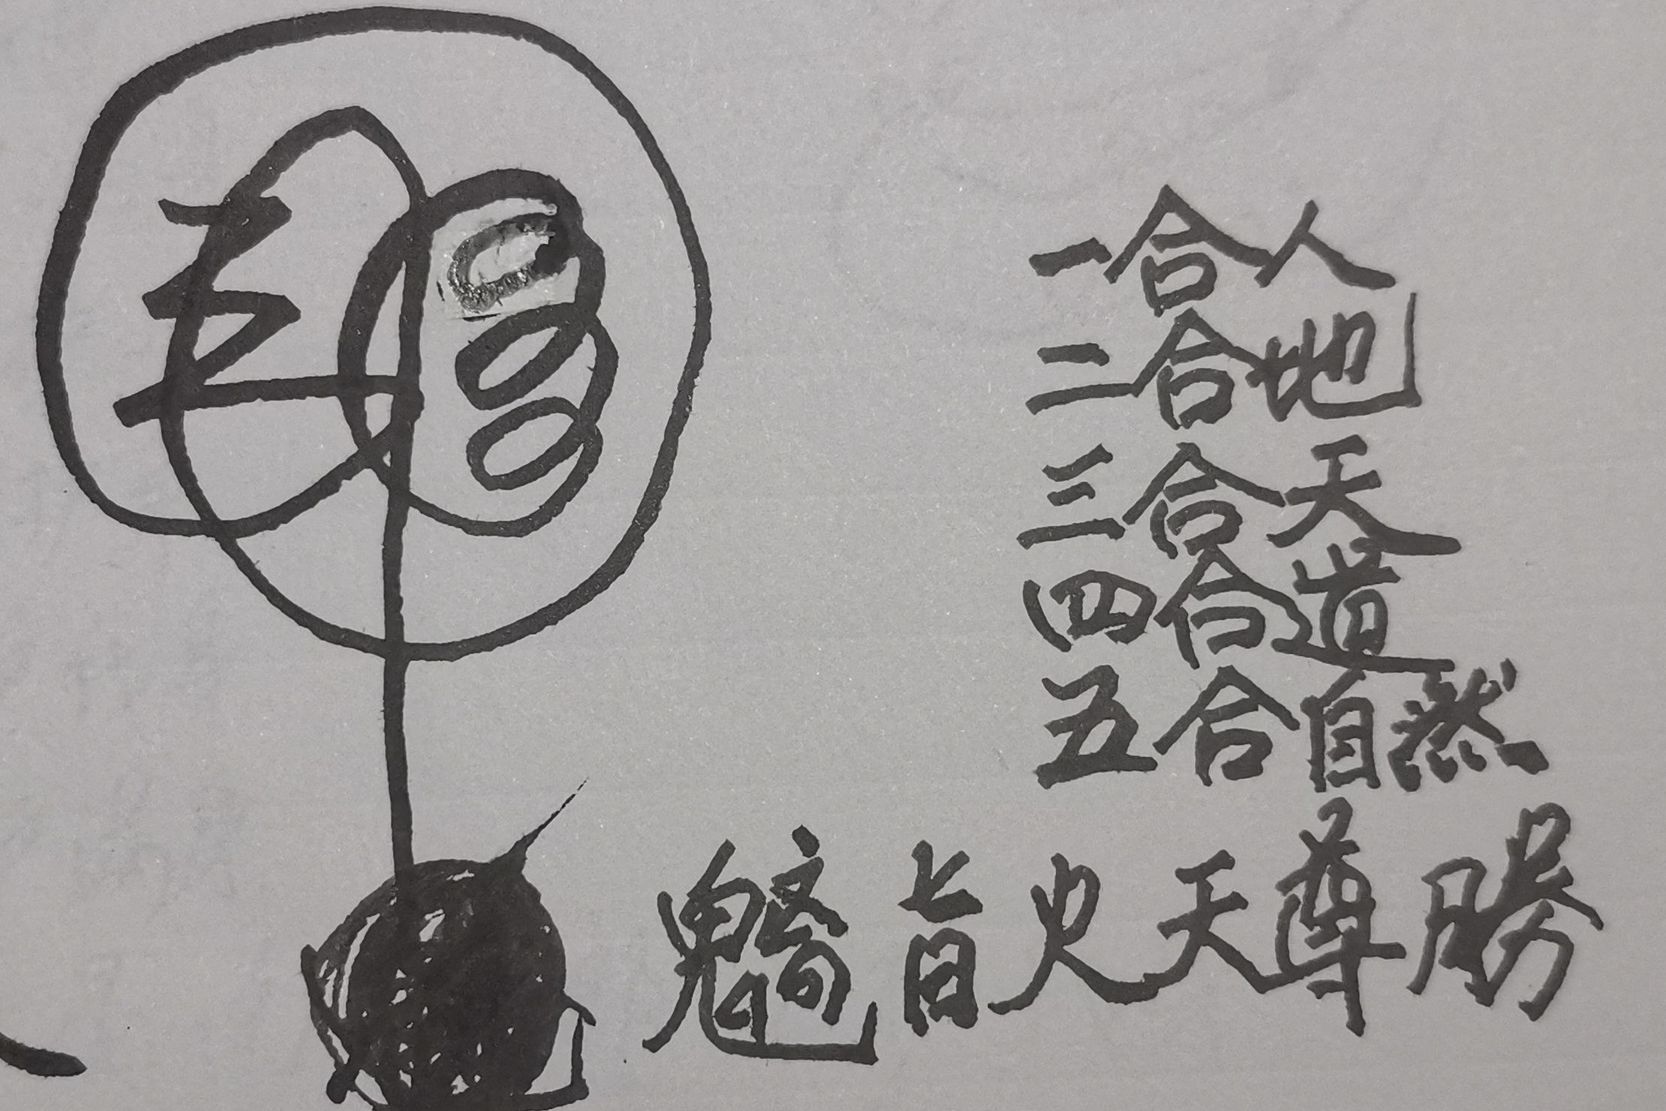 一合人
二合地
三合天
四合道
五合自然
旨火天尊勝